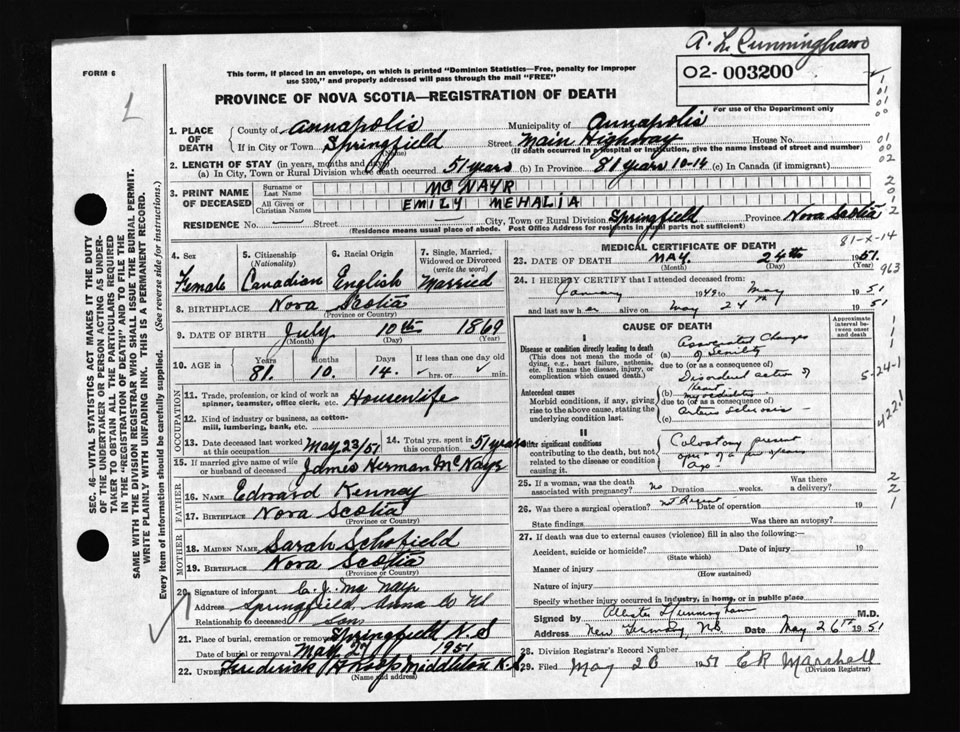 A. L. Cunningham
FORM 6
1
This form, if placed in an envelope, on which is printed "Dominion Statistics—Free, penalty for improper
use $300," and properly addressed will pass through the mail "FREE"
02- 003200
For use of the Department only
PROVINCE OF NOVA SCOTIA—REGISTRATION OF DEATH
1. PLACE OF DEATH
County of Annapolis Municipality of Annapolis
If in City or Town Springfield Street Main Highway House No.
(Name) (If death occurred in a hospital or institution, give the name instead of street and number)
2. LENGTH OF STAY (in years, months and days)
(a) In City, Town or Rural Division where death occurred 51 years (b) In Province 81 years 10-14 (c) In Canada (if immigrant)
3. PRINT NAME OF DECEASED
Surname or Last Name MCNAYR
All Given or Christian Names EMILY MEHALIA
RESIDENCE No. — Street — City, Town or Rural Division Springfield Province Nova Scotia
(Residence means usual place of abode. Post Office Address for residents in rural parts not sufficient)
4. Sex
Female
5. Citizenship (Nationality)
Canadian
6. Racial Origin
English
7. Single, Married, Widowed or Divorced (write the word)
Married
8. BIRTHPLACE Nova Scotia
(Province or Country)
9. DATE OF BIRTH July 10th 1869
(Month) (Day) (Year)
10. AGE in Years Months Days If less than one day old
81. 10. 14. hrs. or min.
OCCUPATION
11. Trade, profession, or kind of work as spinner, teamster, office clerk, etc. Housewife
12. Kind of industry or business, as cotton-mill, lumbering, bank, etc.
13. Date deceased last worked at this occupation May 23/51
14. Total yrs. spent in this occupation 51 years
15. If married give name of wife or husband of deceased James Herman McNayr
FATHER
16. NAME Edward Kenney
17. BIRTHPLACE Nova Scotia
(Province or Country)
MOTHER
18. MAIDEN NAME Sarah Schofield
19. BIRTHPLACE Nova Scotia
(Province or Country)
20. Signature of informant C. J. McNayr
Address Springfield, Anna Co NS
Relationship to deceased son
21. Place of burial, cremation or removal Springfield N.S
Date of burial or removal May 27 1951
22. Frederick Roop Middleton N.S.
(Name and address)
MEDICAL CERTIFICATE OF DEATH
81-X-14
23. DATE OF DEATH MAY. 24th 1951.
(Month) (Day) (Year)
963
24. I HEREBY CERTIFY that I attended deceased from
January 1949 to May 1951
and last saw her alive on May 24th 1951
CAUSE OF DEATH
Approximate interval between onset and death
I
Disease or condition directly leading to death
(This does not mean the mode of dying, e.g., heart failure, asthenia, etc. It means the disease, injury, or complication which caused death.)
(a) Associated Changes
of Senility
due to (or as a consequence of)
Disordered action of
heart
(b) myocarditis
5-24-1
Antecedent causes
Morbid conditions, if any, giving rise to the above cause, stating the underlying condition last.
due to (or as a consequence of)
Arterio Sclerosis
(c)
422.1
II
Other significant conditions
contributing to the death, but not related to the disease or condition causing it.
Colostomy present
oper. a few years
ago.
25. If a woman, was the death associated with pregnancy? No Duration weeks. Was there a delivery?
26. Was there a surgical operation? not Recent Date of operation 19
State findings Was there an autopsy?
27. If death was due to external causes (violence) fill in also the following:—
Accident, suicide or homicide? Date of injury 19
(State which)
Manner of injury
Nature of injury
Specify whether injury occurred in industry, in home, or in public place
Signed by Cunningham M.D.
Address New Germany, N.S. Date May 26th 1951
28. Division Registrar's Record Number
29. Filed May 26 1951 C R Marshall
(Division Registrar)
SEC. 46—VITAL STATISTICS ACT MAKES IT THE DUTY
OF THE UNDERTAKER OR PERSON ACTING AS UNDER-
TAKER TO OBTAIN ALL THE PARTICULARS REQUIRED
IN THE "REGISTRATION OF DEATH" AND TO FILE THE
SAME WITH THE DIVISION REGISTRAR WHO SHALL ISSUE THE BURIAL PERMIT.
WRITE PLAINLY WITH UNFADING INK. THIS IS A PERMANENT RECORD.
Every item of information should be carefully supplied. (See reverse side for instructions.)